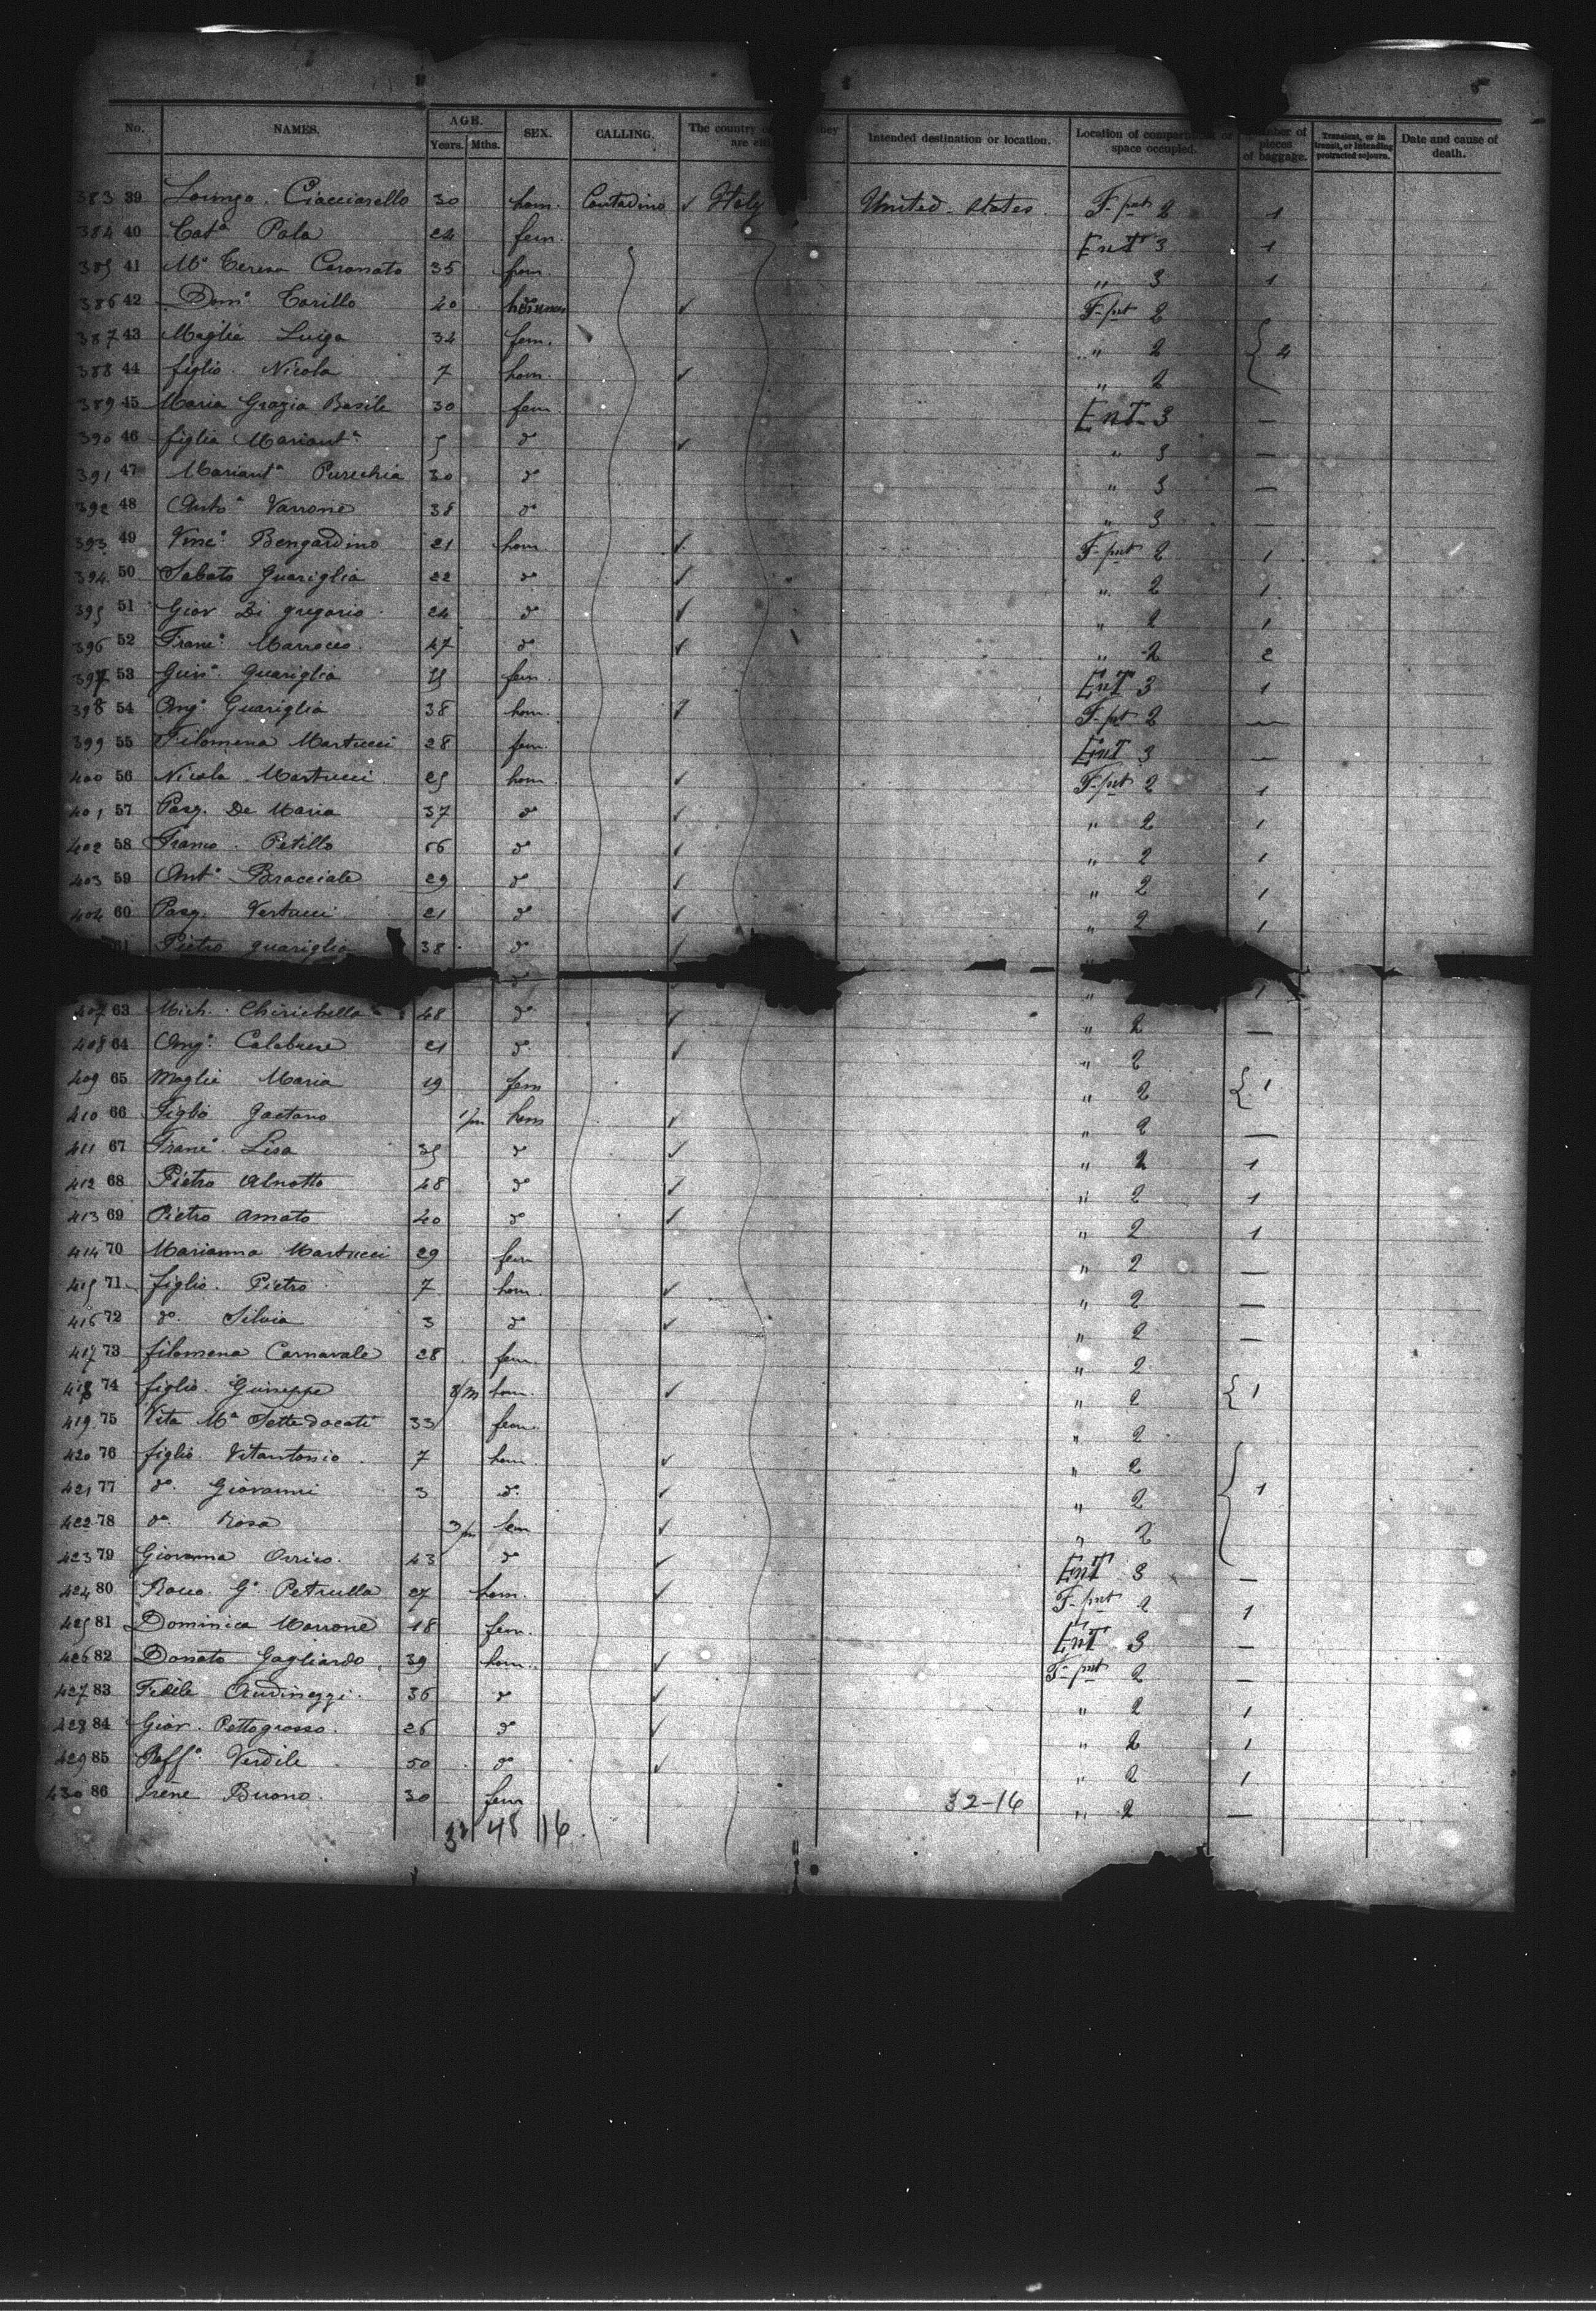 No. NAMES. AGE. Years. Mths. SEX. CALLING. The country they are Intended destination or location. Location of compartment or space occupied. pieces of baggage. Transient, or in transit, or intending protracted sojourn. Date and cause of death.
383 39 Lorenzo Ciacciarello 30 hom. Contadino ✓ Italy United States F-pnt 2 1
384 40 Catª Pala 24 fem. Ent 3 1
385 41 Mª Teresa Coronato 35 fem. " 3 1
386 42 Domº Torillo 40 ✓ F-pnt 2
387 43 Moglie Luiga 34 fem. " 2 { 4
388 44 figlio Nicola 7 hom. ✓ " 2
389 45 Maria Grazia Basile 30 fem. Ent 3 —
390 46 figlia Mariantª 5 dº ✓ " 3 —
391 47 Mariantª 30 dº " 3 —
392 48 Antª Varrone 38 dº " 3 —
393 49 Vincº Bengardino 21 hom. ✓ F-pnt 2 1
394 50 Sabato Guariglia 22 dº ✓ " 2 1
395 51 Giov Di gregorio 24 dº ✓ " 2 1
396 52 Francº Marrocco 47 dº ✓ " 2 2
397 53 Guisª Guariglia fem. Ent 3 1
398 54 Angº Guariglia 38 hom. F-pnt 2 —
399 55 Filomena Martucci 28 fem. Ent 3 —
400 56 Nicola Martucci 25 hom. ✓ F-pnt 2 1
401 57 Pasq. De Maria 37 dº ✓ " 2 1
402 58 Franco Petillo dº ✓ " 2 1
403 59 Antº Bracciale 29 dº ✓ " 2 1
404 60 Pasq. Vertucci 21 dº ✓ " 2 1
61 Pietro guariglia 38 dº ✓
dº " 1
407 63 Mich. Chirichella 48 dº ✓ " 2 —
408 64 Angº Calabrese 21 dº ✓ " 2
409 65 Moglie Maria 19 fem " 2 { 1
410 66 Figlio Gaetano 1/m hom ✓ " 2 —
411 67 Francº Lisa 35 dº ✓ " 2 1
412 68 Pietro 48 dº ✓ " 2 1
413 69 Pietro Amato 40 dº ✓ " 2 1
414 70 Marianna Martucci 29 fem " 2 —
415 71 figlio Pietro 7 hom. ✓ " 2 —
416 72 dº Silvia 3 dº ✓ " 2 —
417 73 filomena Carnavale 28 fem. " 2
418 74 figlio Guiseppe 8/m hom. ✓ " 2 { 1
419 75 Vita Mª Sette ducati 33 fem. " 2
420 76 figlio Vitantonio 7 hom. ✓ " 2
421 77 dº Giovanni 3 dº ✓ " 2 { 1
422 78 dª Rosa 3/m fem ✓ " 2
423 79 Giovanna Orrico 43 dº ✓ Ent 3 —
424 80 Rocco Gº Petrulla 27 hom. ✓ F-pnt 2 1
425 81 Dominica Marrone 18 fem. Ent 3 —
426 82 Donato Gagliardo 39 hom. ✓ F-pnt 2 —
427 83 Fidele 36 dº ✓ " 2 1
428 84 Giov. Pettogrosso 26 dº ✓ " 2 1
429 85 Raffº Verdile 50 dº ✓ " 2 1
430 86 Irene Buono 30 fem 32-16 " 2 —
32 48 16